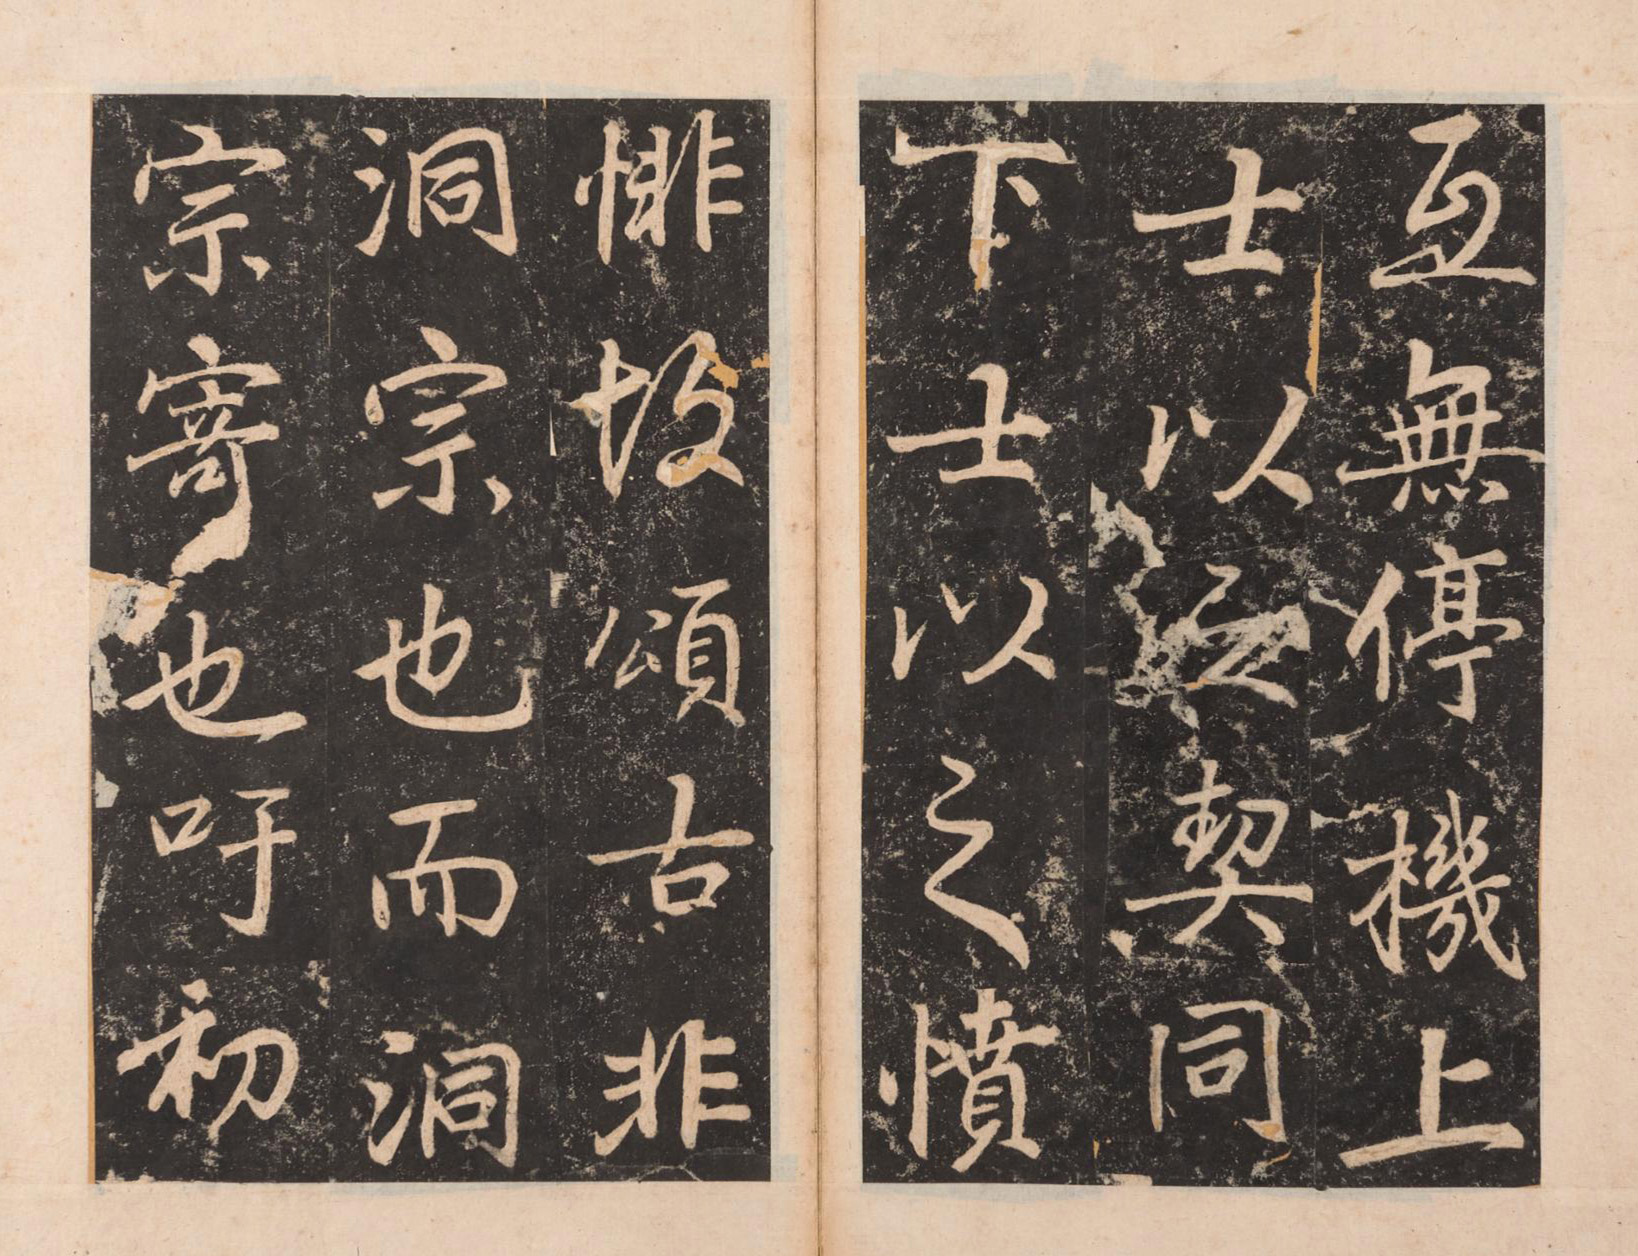 互無停機上
士以之契同
下士以之憤
悱故頌古非
洞宗也而洞
宗寄也吁初